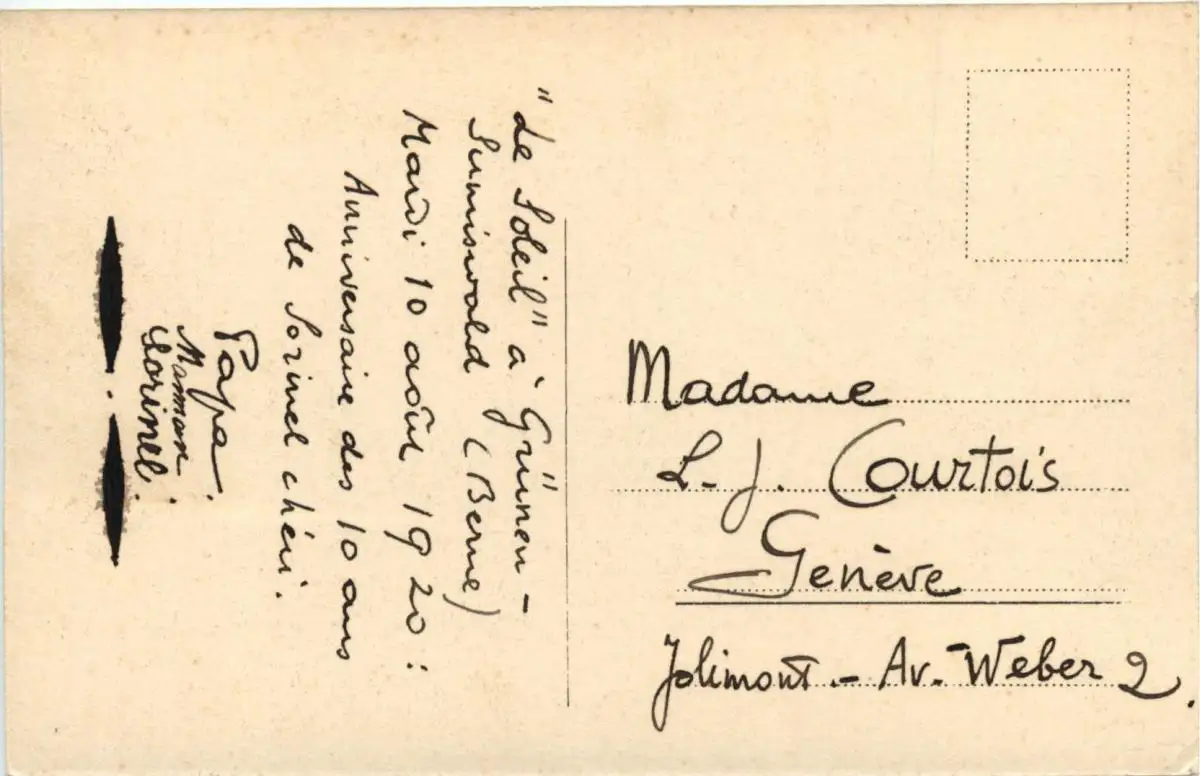 "Le Soleil" à Grünen-
Sumiswald (Berne)
Mardi 10 août 1920:
Anniversaire des 10 ans
de Lorinel chéri.
Papa.
Maman.
Lorinel.
Madame
L.-J. Courtois
Genève
Jolimont.- Av. Weber 2.